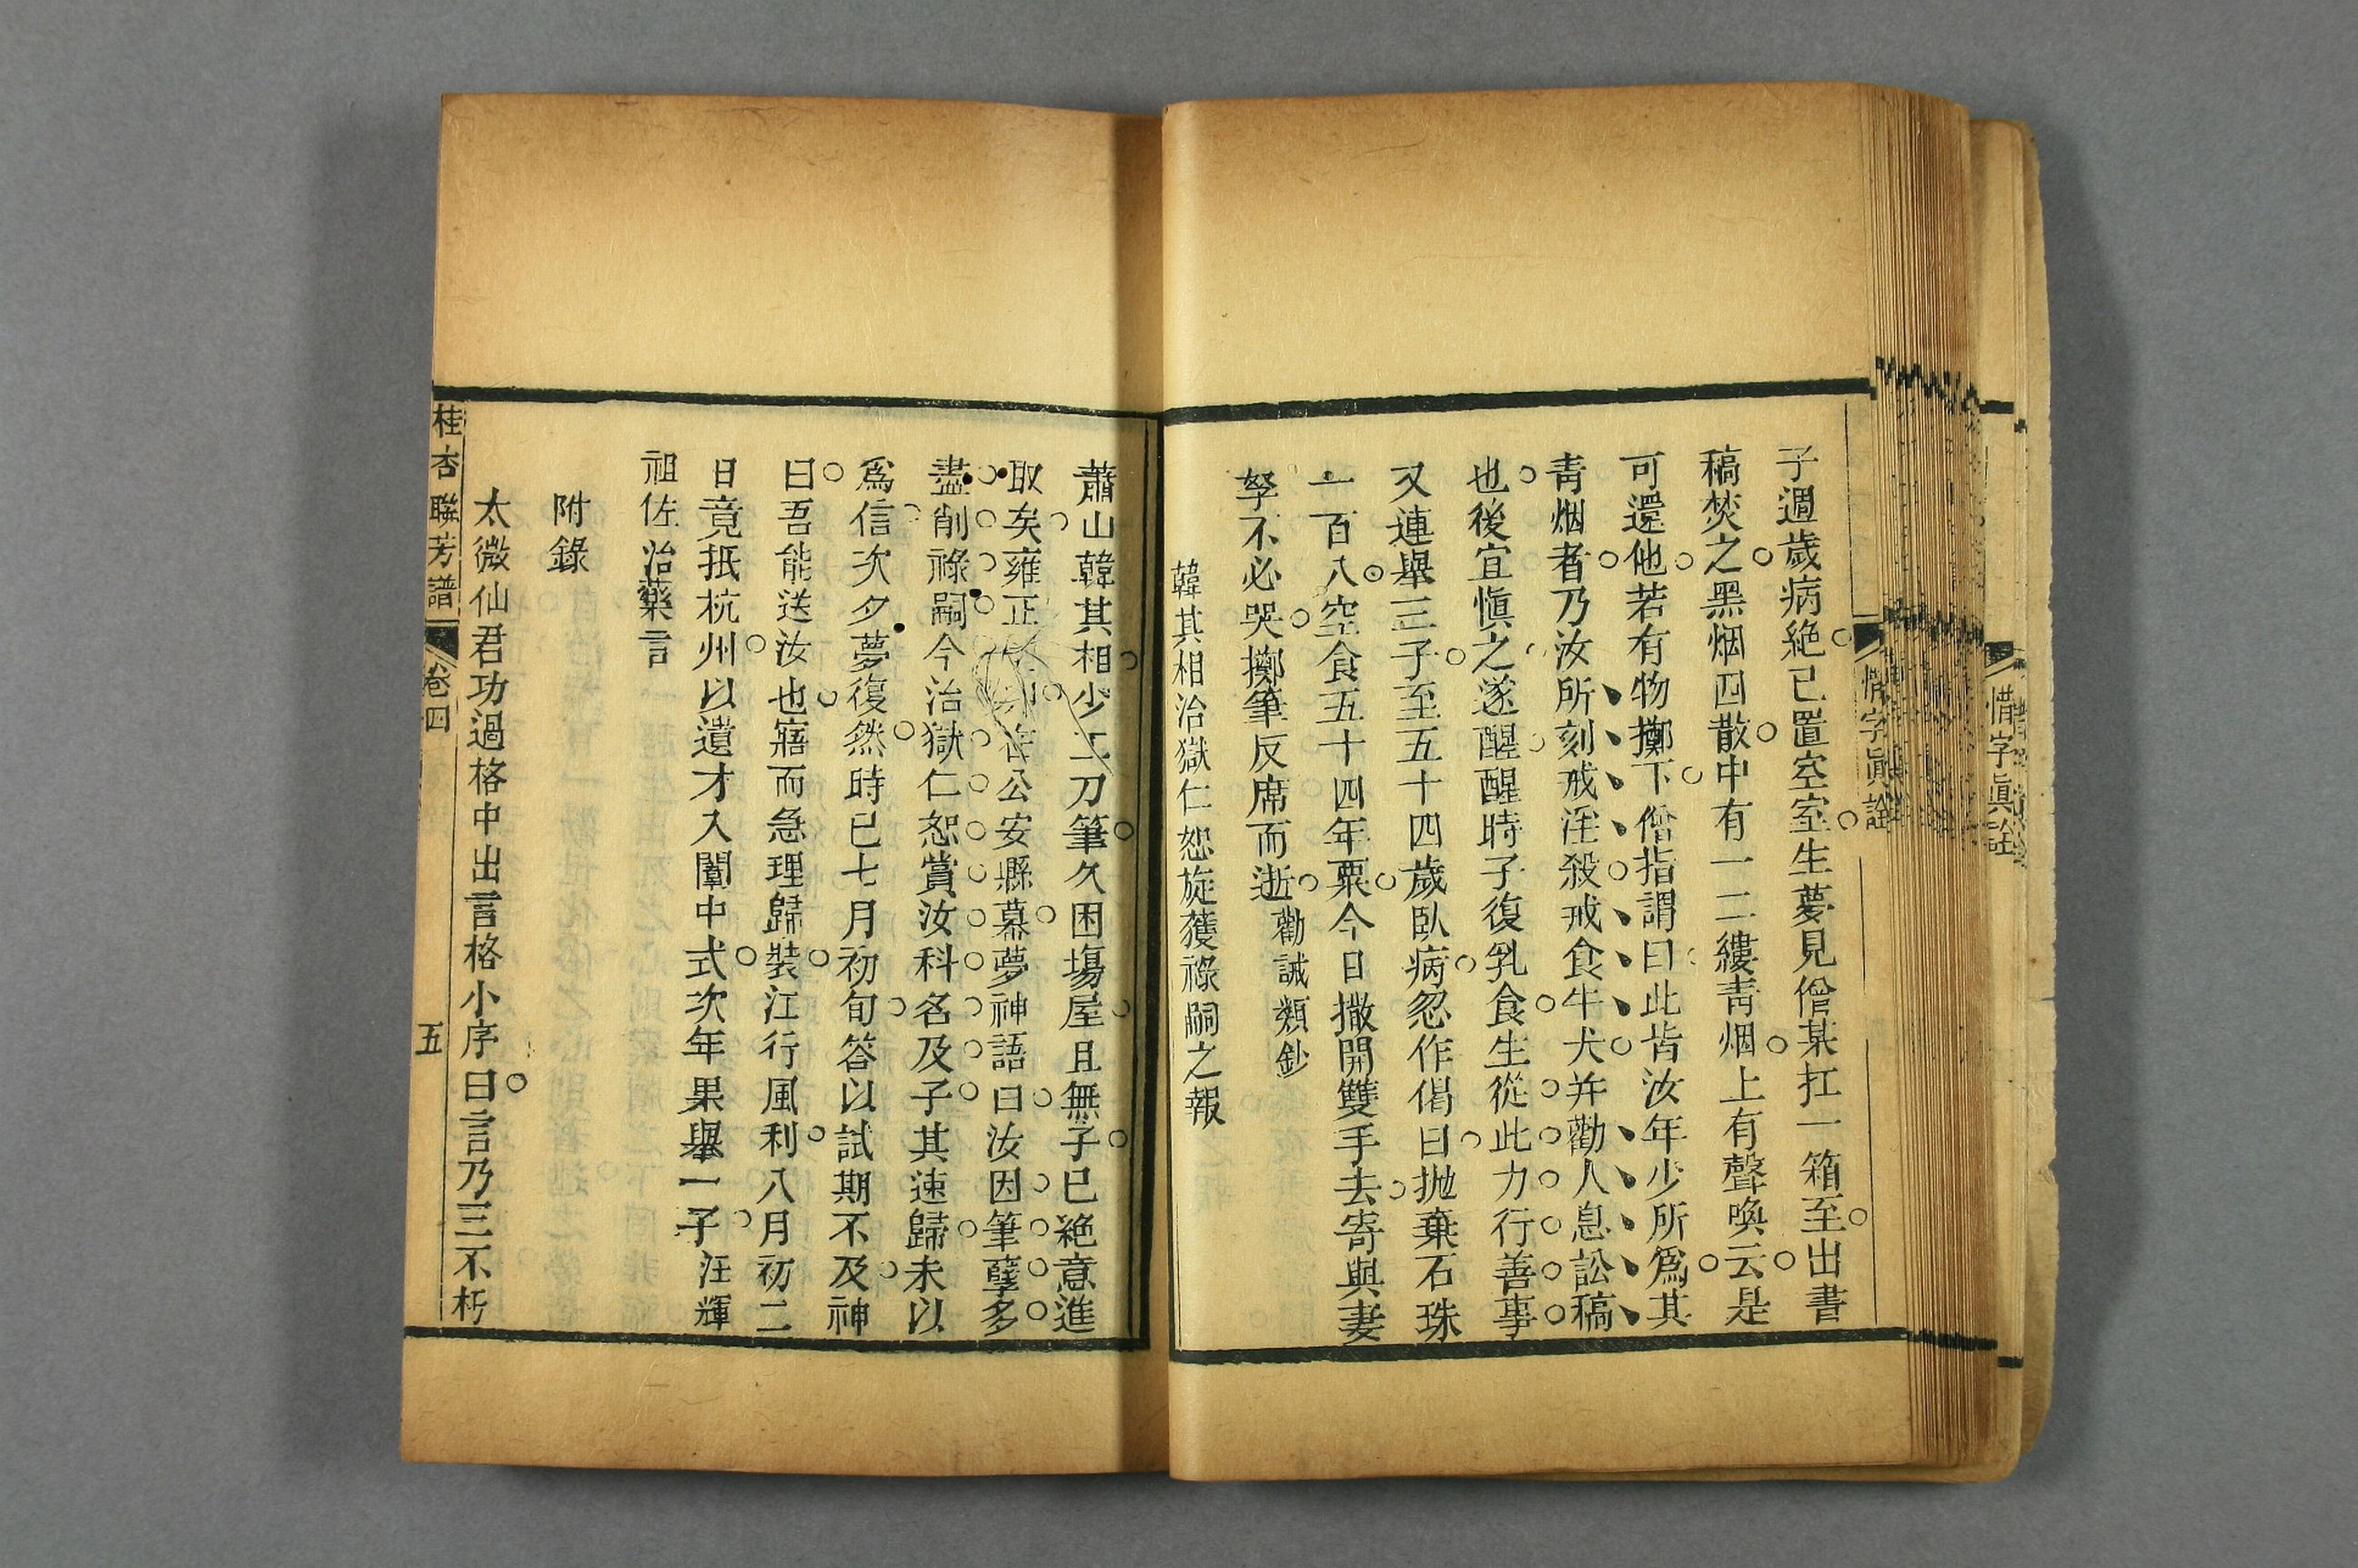 惜字眞詮
惜字眞詮
子週歲病絶已置空室生夢見僧某扛一箱至出書
稿焚之黑烟四散中有一二縷靑烟上有聲喚云是
可還他若有物擲下僧指謂曰此皆汝年少所爲其
靑烟者乃汝所刻戒淫殺戒食牛犬并勸人息訟稿
也後宜愼之遂醒醒時子復乳食生從此力行善事
又連舉三子至五十四歲臥病忽作偈曰抛棄石珠
一百八空食五十四年粟今日撒開雙手去寄與妻
孥不必哭擲筆反席而逝勸誡類鈔
韓其相治獄仁恕旋獲祿嗣之報
蕭山韓其相少工刀筆久困塲屋且無子已絶意進
取矣雍正公安縣幕夢神語曰汝因筆孽多
盡削祿嗣今治獄仁恕賞汝科名及子其速歸未以
爲信次夕夢復然時已七月初旬答以試期不及神
曰吾能送汝也寤而急理歸裝江行風利八月初二
日竟抵杭州以遺才入闈中式次年果舉一子汪輝
祖佐治藥言
附錄
太微仙君功過格中出言格小序曰言乃三不朽
桂杏聯芳譜 卷四 五